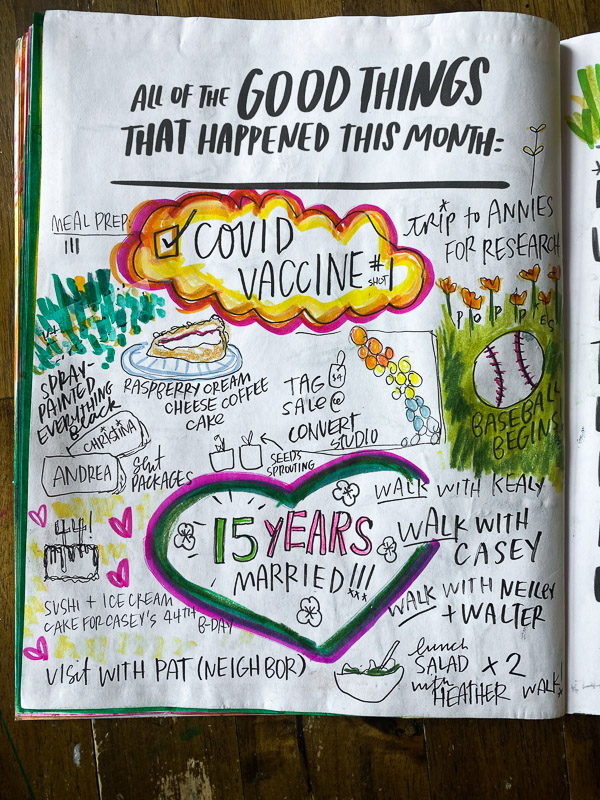 ALL OF THE GOOD THINGS
THAT HAPPENED THIS MONTH:
MEAL PREP
COVID
VACCINE #1
SHOT
TRIP to ANNIES
FOR RESEARCH
POPPIES
SPRAY-
PAINTED
EVERYTHING
BLACK
RASPBERRY CREAM
CHEESE COFFEE
CAKE
TAG
SALE @
CONVERT
STUDIO
BASEBALL
BEGINS
CHRISTINA
ANDREA
SENT
PACKAGES
SEEDS
SPROUTING
15 YEARS
MARRIED!!!
WALK WITH KEALY
WALK WITH
CASEY
WALK WITH NEILEY
+ WALTER
44!
SUSHI + ICE CREAM
CAKE FOR CASEY'S 44TH
B-DAY
VISIT WITH PAT (NEIGHBOR)
lunch
SALAD x 2
with
HEATHER WALK!